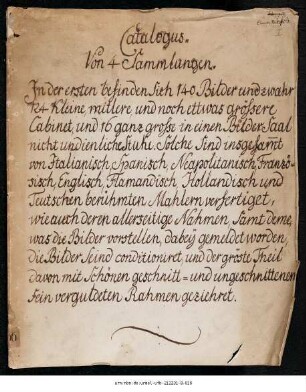 Catalogus.
Von 4 Sammlungen.
In der ersten befinden Sich 140 Bilder und zwahr
124 Kleine mitlere und noch ettwas grössere
Cabinet, und 16 ganz grosse in einen Bilder Saal
nicht undienliche Stuke. Solche Sind insgesamt
von Italianisch Spanisch Neapolitanisch, Französ-
sisch, Englisch, Flamandisch Hollandisch und
Teutschen berühmten Mahlern verfertiget,
wie auch deren allerseitige Nahmen Samt deme,
was die Bilder vorstellen, dabey gemeldet worden,
die Bilder Seind conditioniret, und der gröste Theil
davon mit Schönen geschnitt- und ungeschnittenen
fein verguldeten Rahmen geziehret.